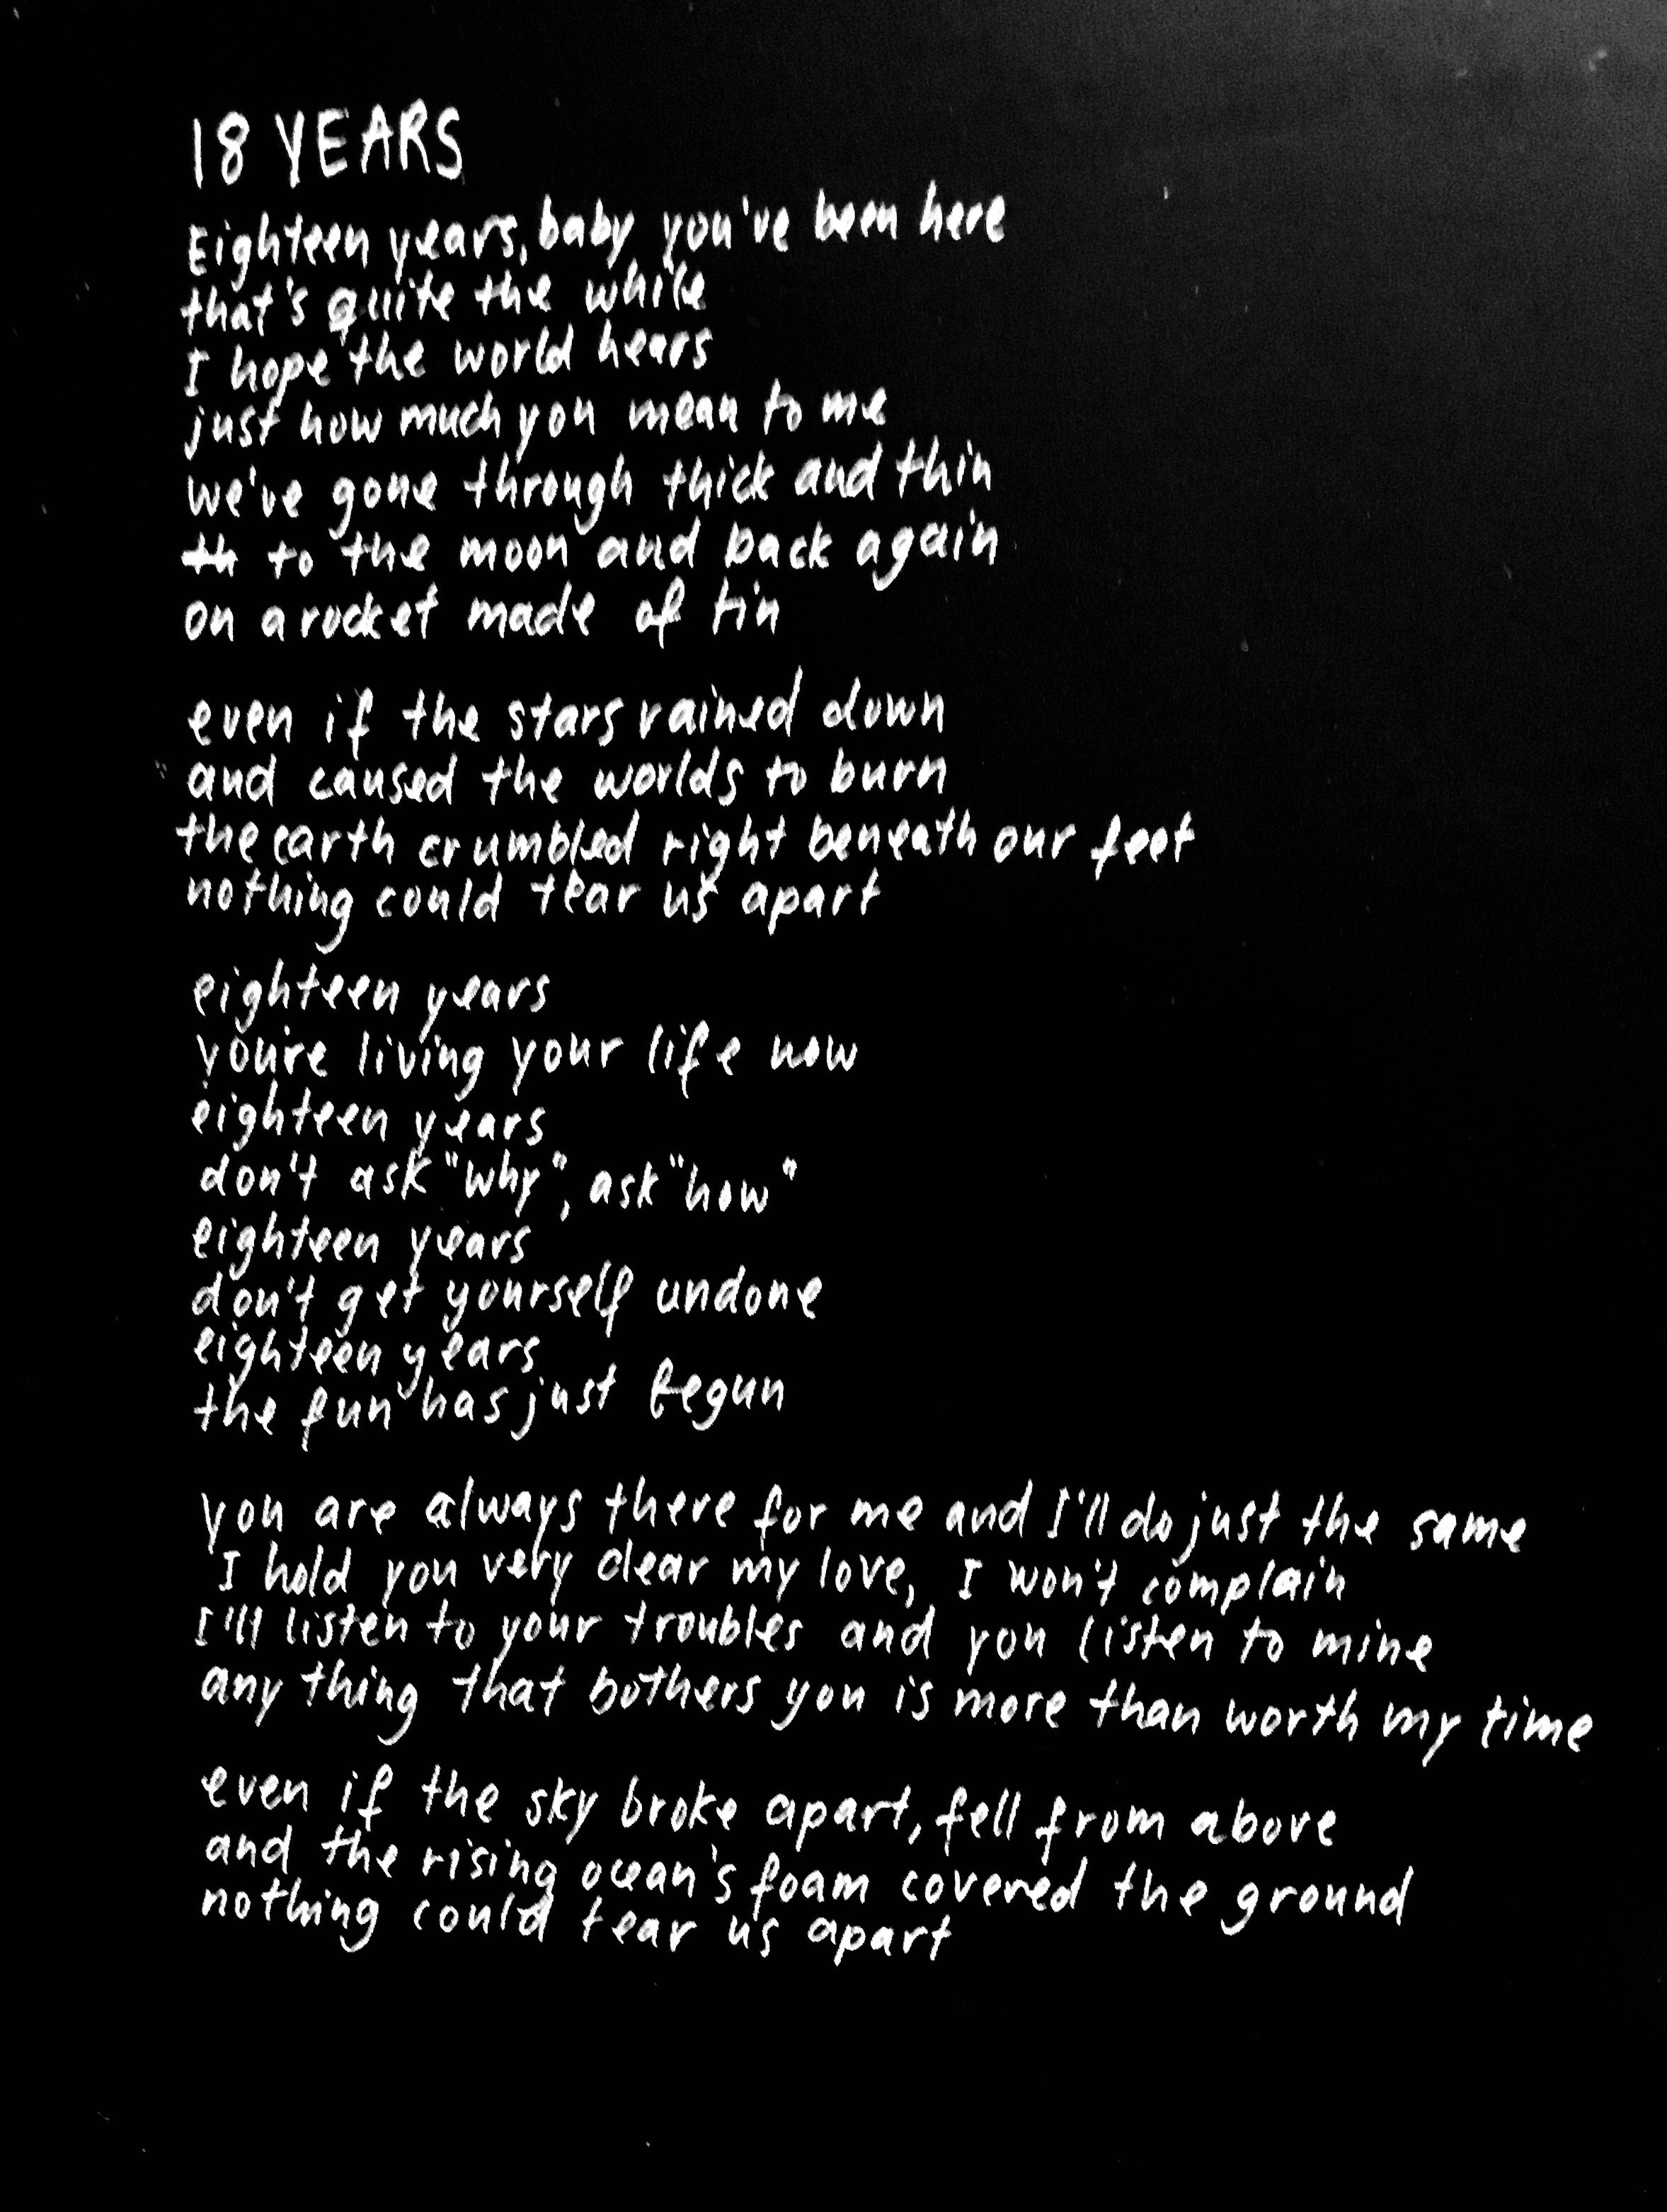 18 YEARS
Eighteen years, baby you've been here
that's quite the while
I hope the world hears
just how much you mean to me
we've gone through thick and thin
th to the moon and back again
on a rocket made of tin
even if the stars rained down
and caused the worlds to burn
the earth crumbled right beneath our feet
nothing could tear us apart
eighteen years
you're living your life now
eighteen years
don't ask "why", ask "how"
eighteen years
don't get yourself undone
eighteen years
the fun has just begun
you are always there for me and I'll do just the same
I hold you very dear my love, I won't complain
I'll listen to your troubles and you listen to mine
any thing that bothers you is more than worth my time
even if the sky broke apart, fell from above
and the rising ocean's foam covered the ground
nothing could tear us apart